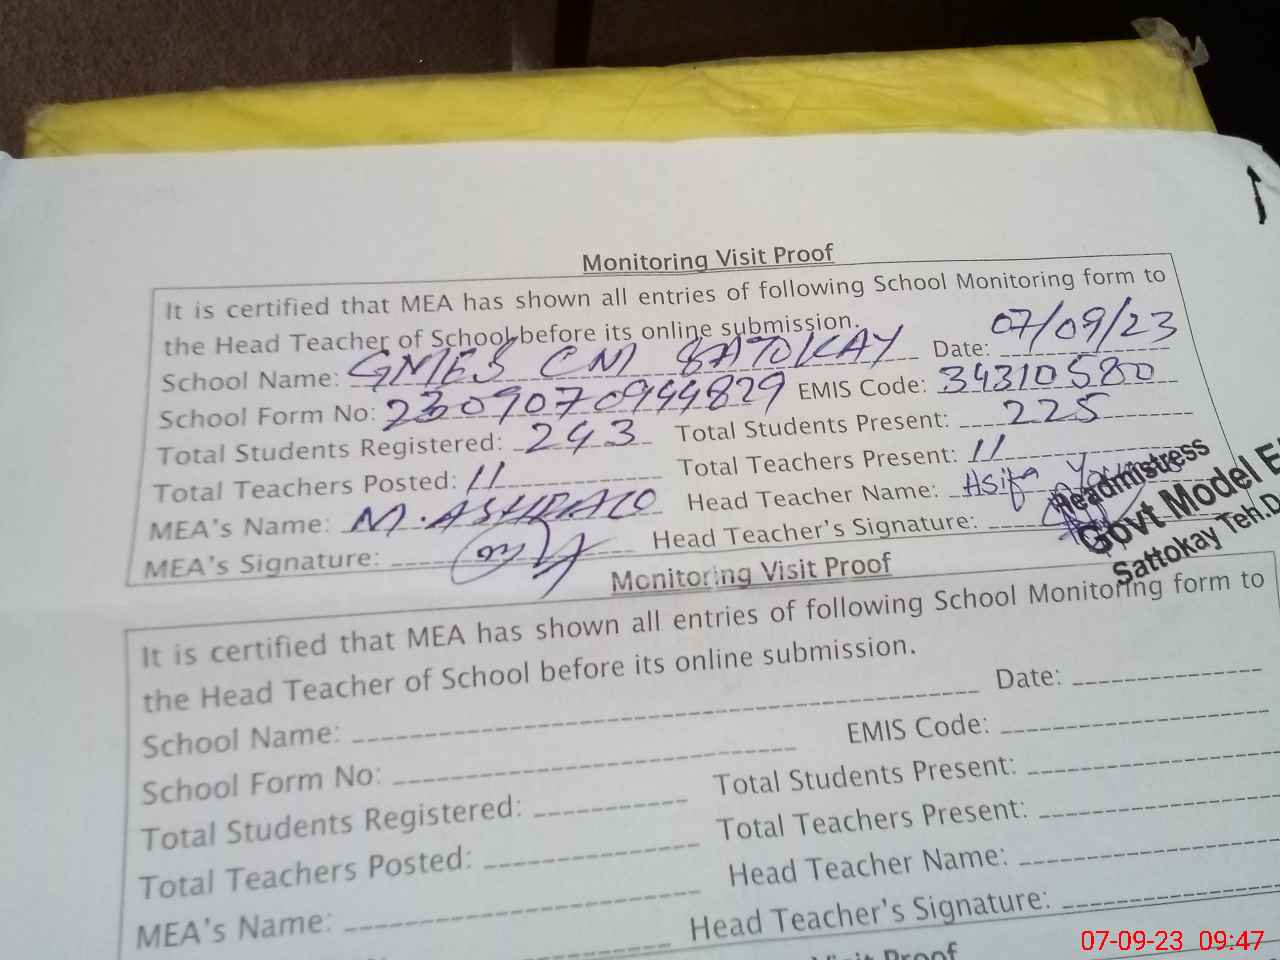 Monitoring Visit Proof
It is certified that MEA has shown all entries of following School Monitoring form to
the Head Teacher of School before its online submission.
School Name: GMES CM SATOKAY Date: 07/09/23
School Form No: 2309070944829 EMIS Code: 34310580
Total Students Registered: 243 Total Students Present: 225
Total Teachers Posted: 11 Total Teachers Present: 11
MEA's Name: M. ASHRAF Head Teacher Name: Asifa
MEA's Signature: Head Teacher's Signature:
Headmistress
Govt Model E
Sattokay Teh.D
Monitoring Visit Proof
It is certified that MEA has shown all entries of following School Monitoring form to
the Head Teacher of School before its online submission.
School Name: Date:
School Form No: EMIS Code:
Total Students Registered: Total Students Present:
Total Teachers Posted: Total Teachers Present:
MEA's Name: Head Teacher Name:
Head Teacher's Signature:
Visit Proof
07-09-23 09:47